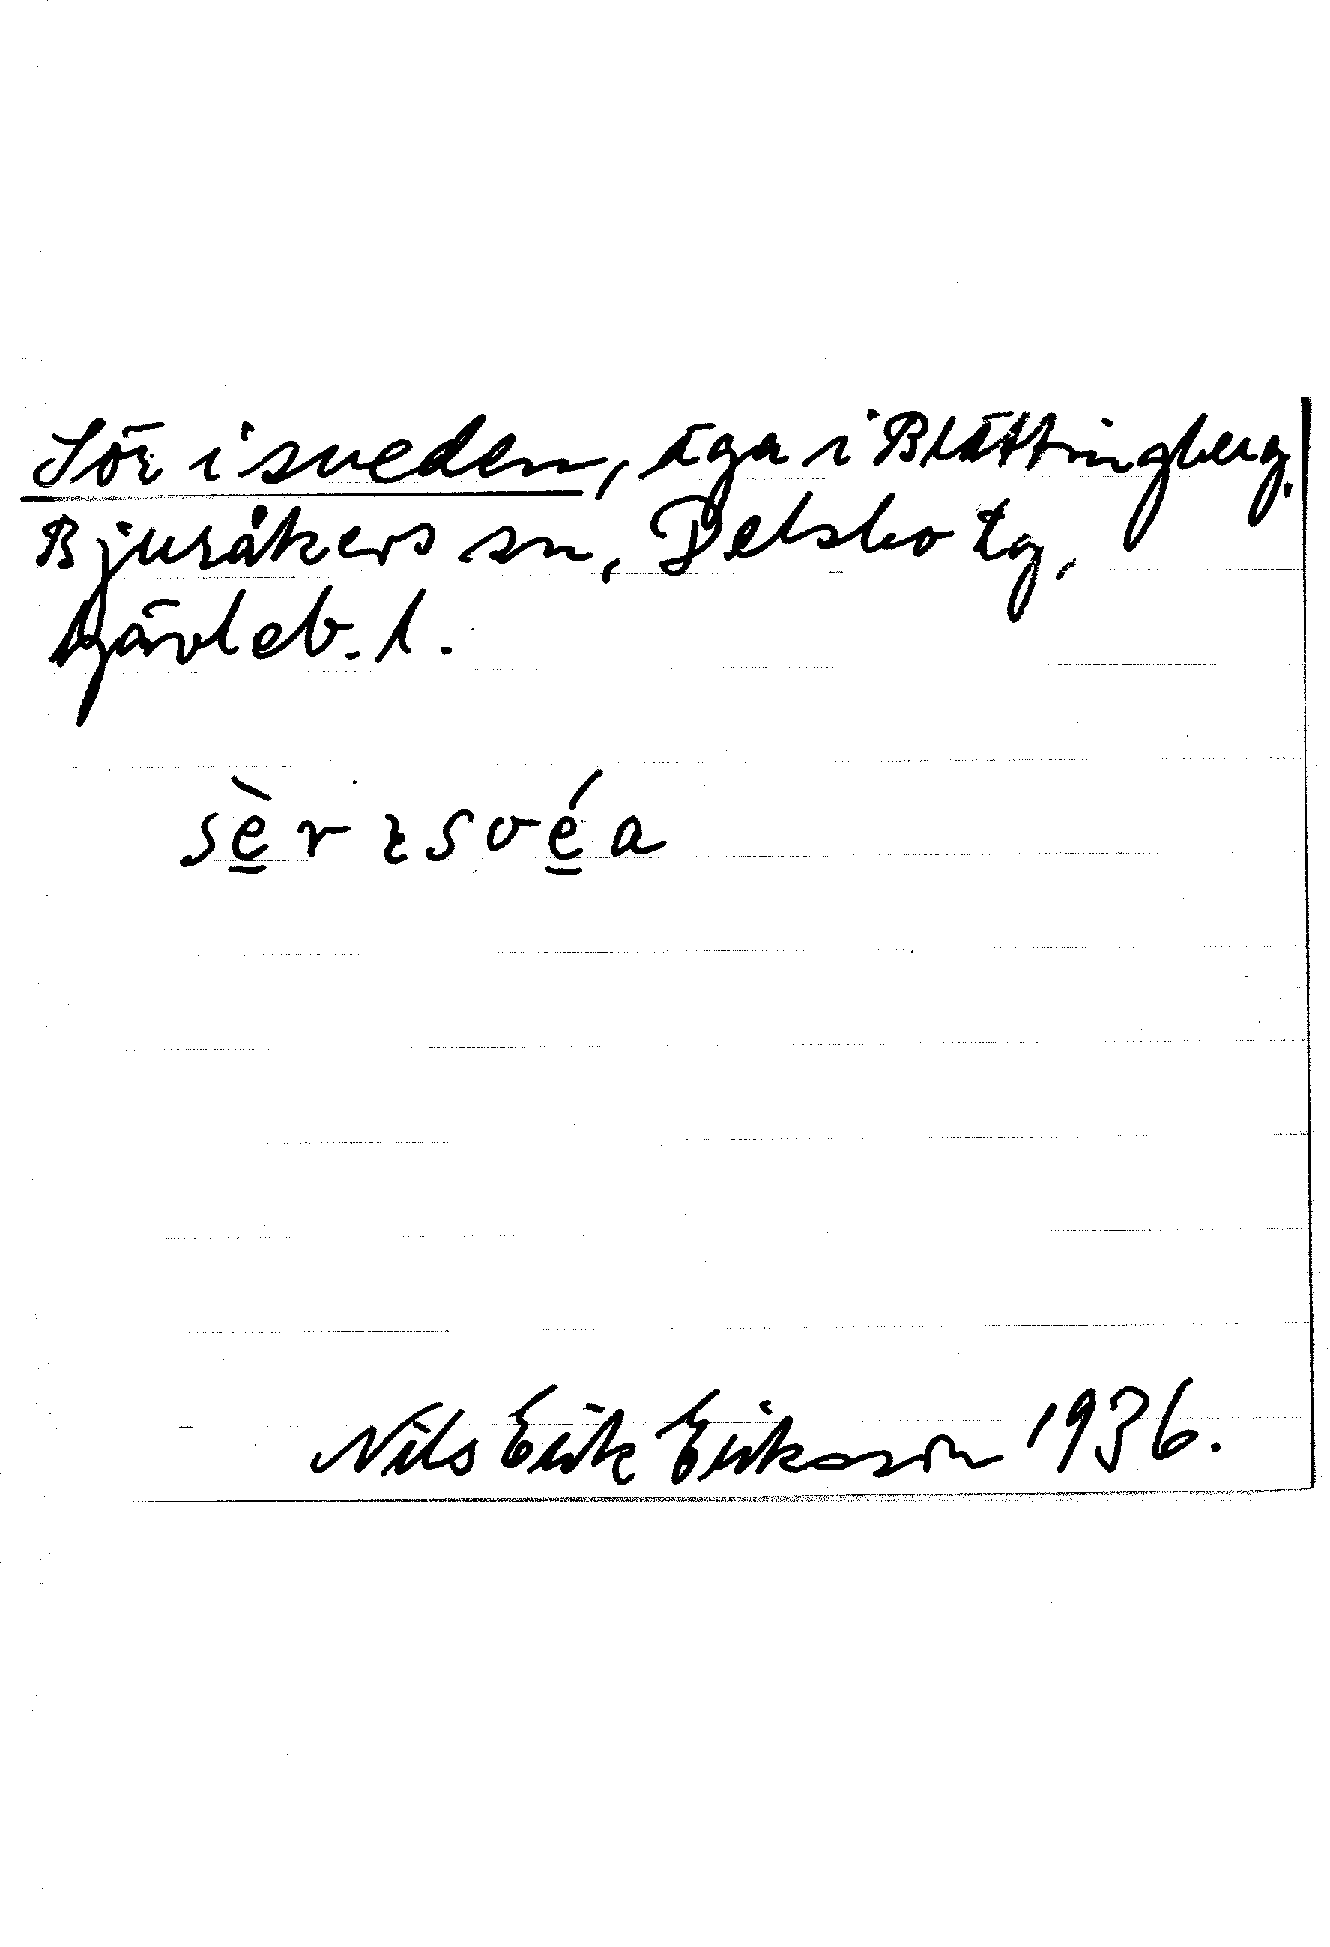 Sör i sveden, äga i Blättingberg,
Bjuråkers sn, Delsbo tg,
Gävleb. l.
sè̱r ɿ své̱a
Nils Erik Eriksson 1936.